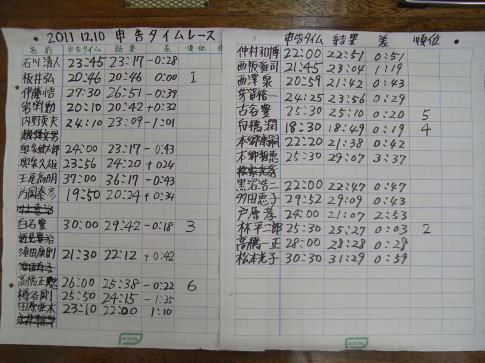 2011 12.10 申告タイムレース
名前 申告タイム 結果 差 順位
石川清人 23:45 23:17 -0:28
板井弘 20:46 20:46 0:00 1
伊藤悟 27:30 26:51 -0:39
20:10 20:42 +0:32
内野 24:10 23:09 -1:01
24:00 23:17 -0:43
奥泉久雄 23:56 24:20 +024
王尾高明 37:00 36:17 -0:43
片岡泰彦 19:50 20:24 +0:34
白石豊 30:00 29:42 -0:18 3
須田康則 21:30 22:12 +0:42
高橋正 26:00 25:38 -0:22 6
樽谷剛 25:50 24:15 -1:35
田原亜木 23:10 22:00 1:10
申告タイム 結果 差 順位
仲村和博 22:00 22:51 0:51
西坂 司 21:45 23:04 1:19
西澤泉 20:59 21:42 0:43
芳賀 一 24:25 23:56 0:29
古谷豊 25:30 25:10 0:20 5
舟橋潤 18:30 18:49 0:19 4
本郷 22:20 21:38 0:42
本郷 恵 25:30 29:07 3:37
黒沼浩二 22:00 22:47 0:47
多田恵子 29:52 29:09 0:43
戸原孝 24:00 21:07 2:53
林平二郎 25:30 25:27 0:03 2
高橋正一 28:00 28:28 0:28
松本光子 30:30 31:29 0:59